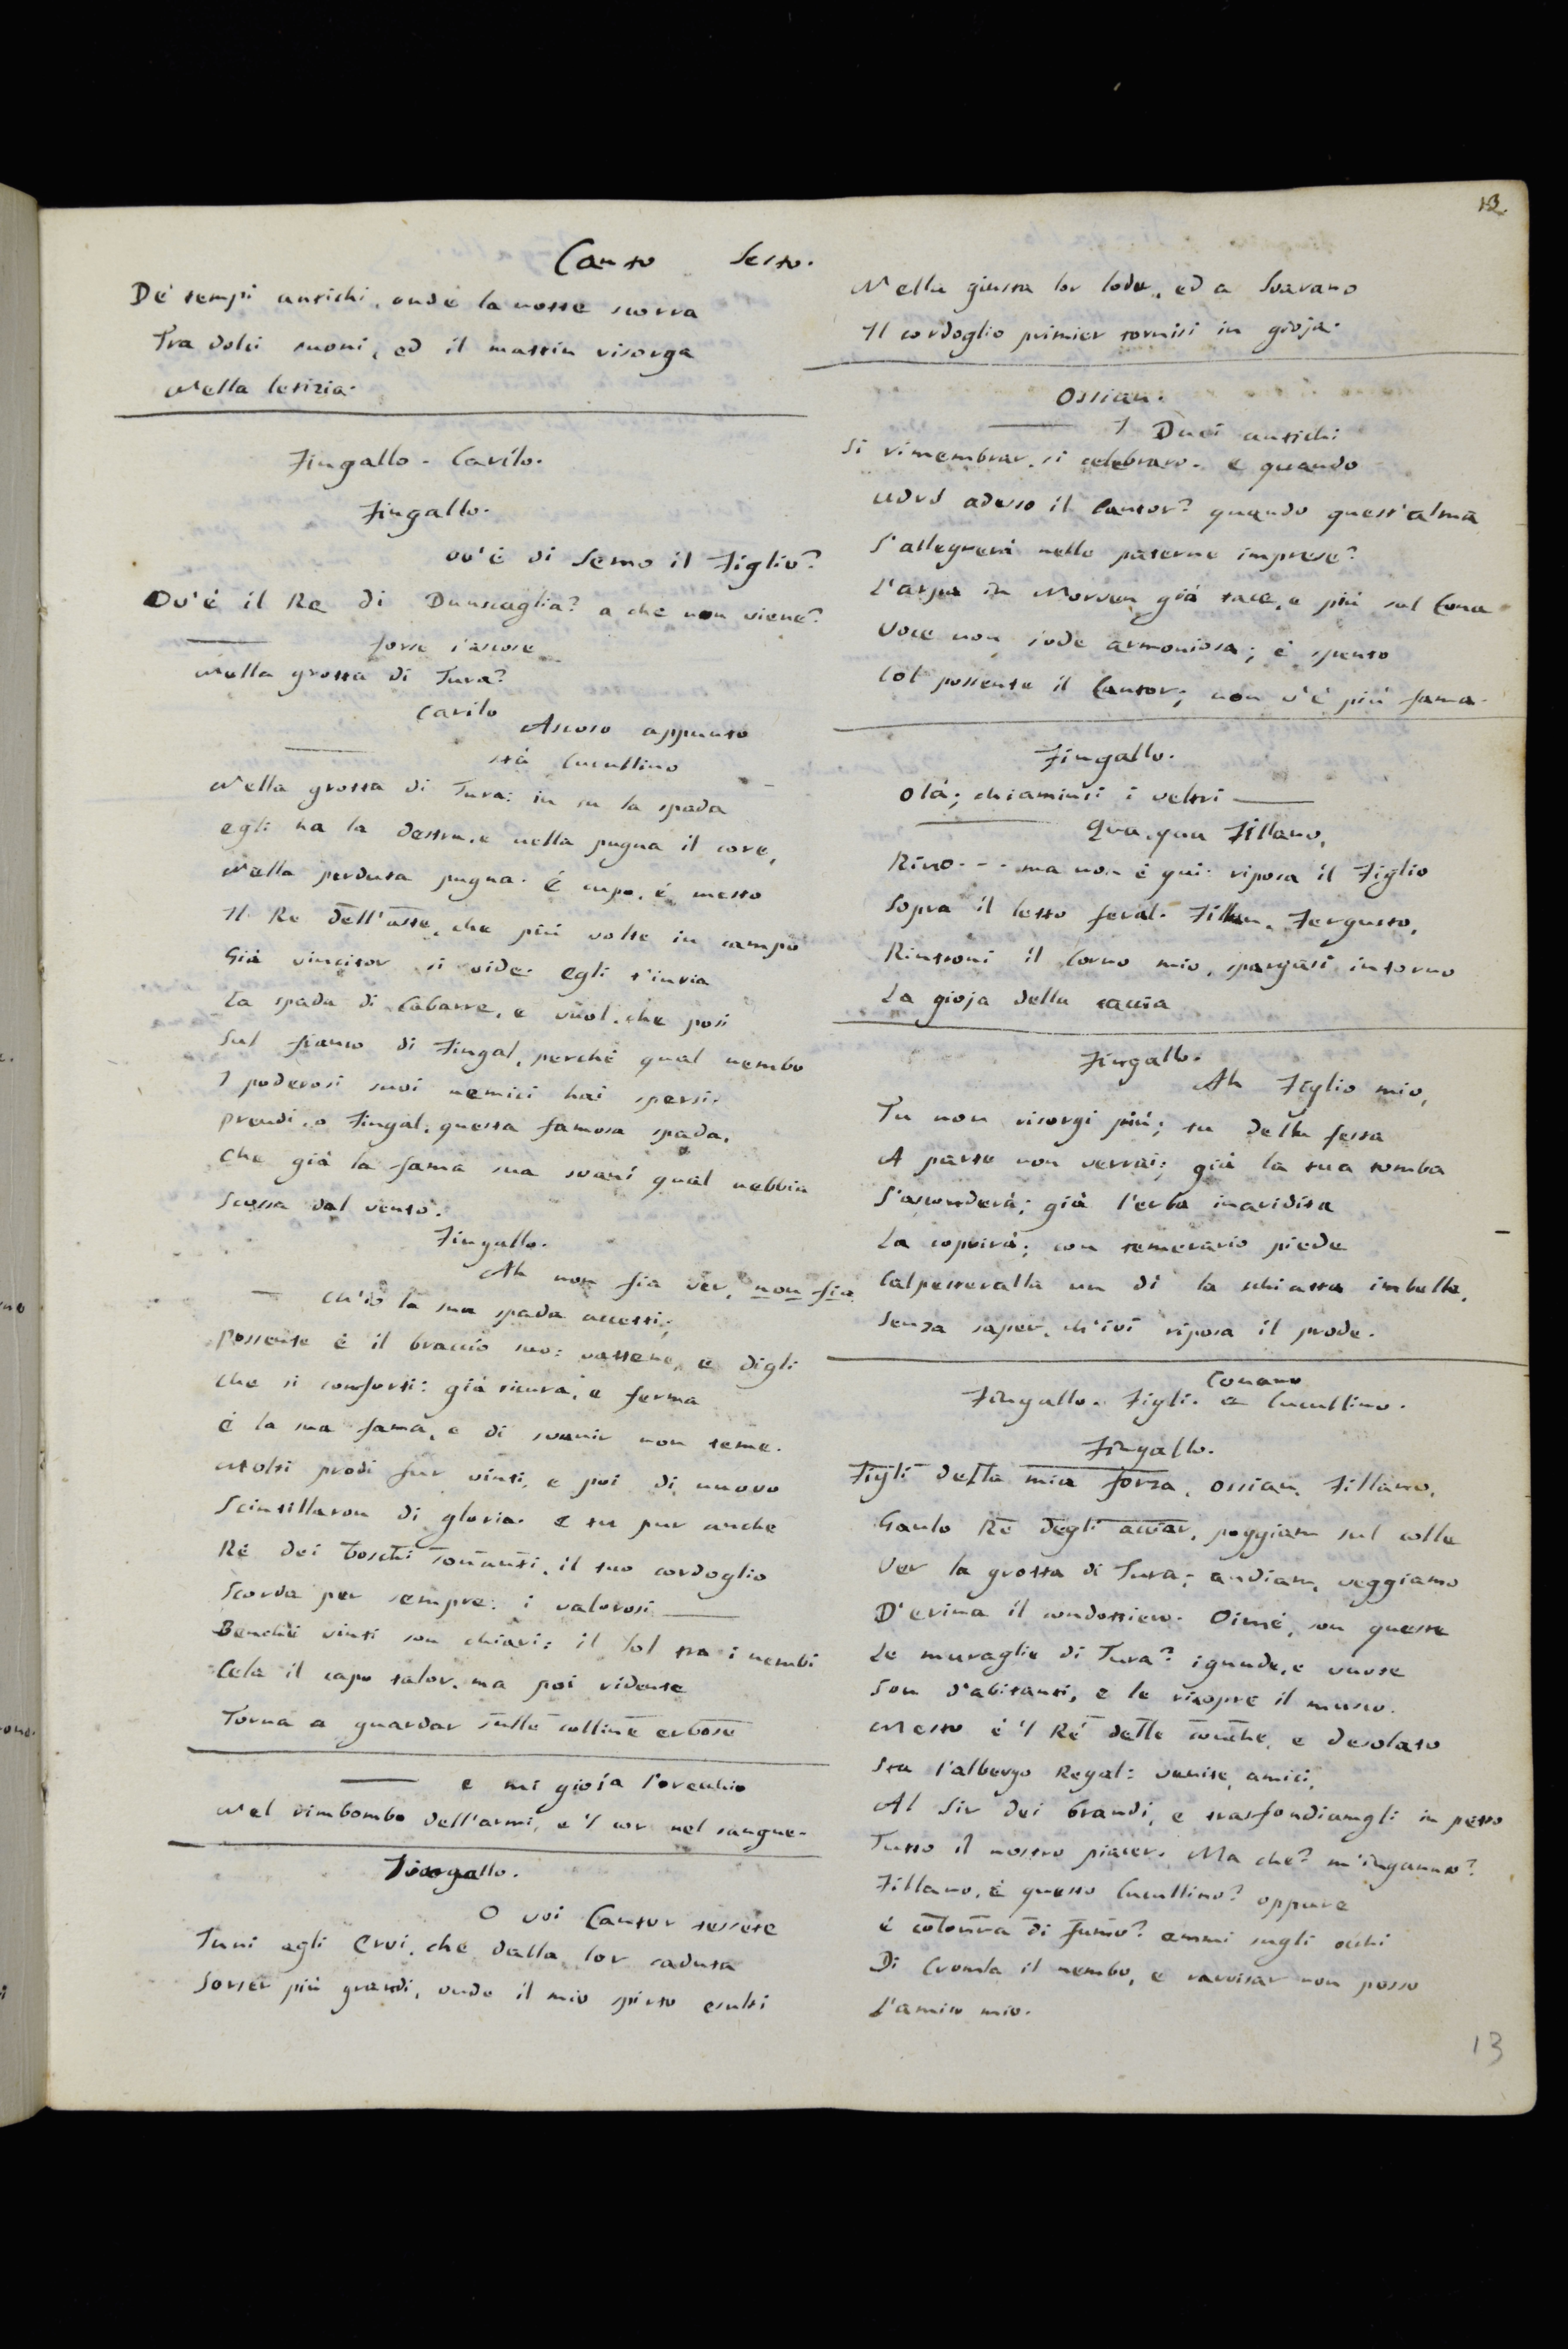 13.
Canto Sesto.
De' tempi antichi, onde la notte scorra
Tra dolci suoni, ed il mattin risorga
Nella letizia.
Fingallo - Carilo.
Fingallo.
ov'è di Semo il Figlio?
Ov'è il Re di Dunscaglia? a che non viene?
forse s'ascose
Nella grotta di Tura?
Carilo
Ascoso appunto
stà Cucullino
Nella grotta di Tura: in su la spada
egli ha la destra, e nella pugna il core,
Nella perduta pugna. è cupo, è mesto
Il Re dell'aste, che più volte in campo
Già vincitor si vide. egli t'invia
La spada di Cabarre, e vuol, che posi
Sul fianco di Fingal, perchè qual nembo
I poderosi suoi nemici hai spersi.
prendi, o Fingal, questa famosa spada,
Che già la fama sua svanì qual nebbia
Scossa dal vento.
Fingallo.
Ah non fia ver, non fia
ch'io la sua spada accetti;
possente è il braccio suo: vattene, e digli
che si conforti: già sicura, e ferma
è la sua fama, e di svanir non teme.
Molti prodi fur vinti, e poi di nuovo
Scintillaron di gloria. e tu pur anche
Re dei boschi sonanti, il tuo cordoglio
Scorda per sempre: i valorosi
Benchè vinti son chiari: il Sol tra i nembi
Cela il capo talor, ma poi ridente
Torna a guardar sulle colline erbose
e mi gioia l'orecchio
Nel rimbombo dell'armi, e 'l cor nel sangue.
Fingallo.
O voi Cantor tessete
Inni agli Eroi, che dalla lor caduta
Sorser più grandi, onde il mio spirto esulti
Nella giusta lor lode, ed a Svarano
Il cordoglio primier tornisi in gioja.
Ossian.
I Duci antichi
Si rimembrar, si celebraro. e quando
Udrò adesso il Cantor? quando quest'alma
S'allegrerà nelle paterne imprese?
L'arpa in Morven già tace, e più sul Cona
Voce non s'ode armoniosa; è spento
Col possente il Cantor; non v'è più fama.
Fingallo.
Olà; chiaminsi i veltri
Qua, qua Fillano,
Rino - - - ma non è qui: riposa il Figlio
Sopra il letto feral. Fillan, Fergusto,
Rintroni il Corno mio, spargasi intorno
La gioja della caccia
Fingallo.
Ah Figlio mio,
Tu non risorgi più; tu della festa
A parte non verrai; già la tua tomba
S'asconderà; già l'erba inaridita
La coprirà; con temerario piede
Calpesteralla un dì la schiatta imbelle,
Senza saper, ch'ivi riposa il prode.
Conano
Fingallo. Figli. e Cucullino.
Fingallo.
Figli della mia forza, Ossian, Fillano,
Gaulo Re degli acciar, poggiam sul colle
Ver la grotta di Tura; andiam, veggiamo
D'erina il condottiero. Oimè, son queste
Le muraglie di Tura? ignude, e vuote
Son d'abitanti, e le ricopre il musco.
Mesto è 'l Re delle conche, e desolato
Sta l'albergo Regal: venite, amici,
Al Sir dei brandi, e trasfondiamgli in petto
Tutto il nostro piacer. Ma che? m'inganno?
Fillano, è questo Cucullino? oppure
è colonna di fumo? emmi sugli occhi
Di Cromla il nembo, e ravvisar non posso
L'amico mio.
13